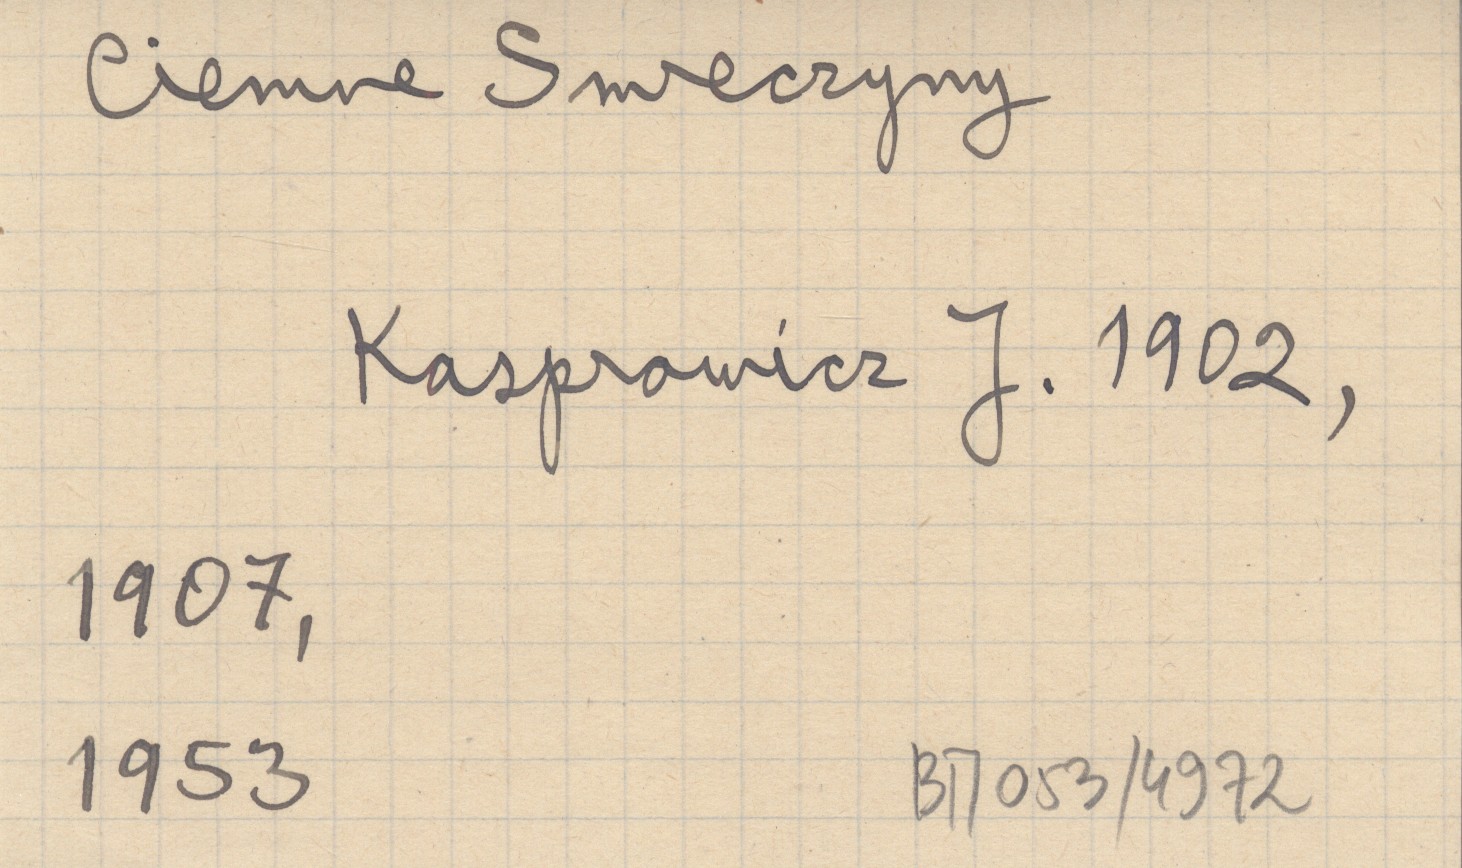 Ciemne Smreczyny
Kasprowicz J. 1902,
1907,
1953
ВП 053/4972